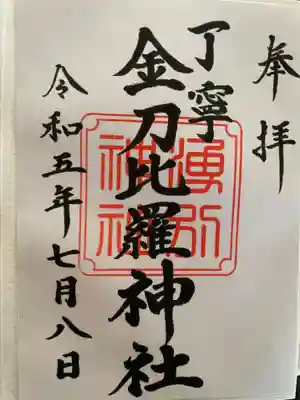 奉拝
丁寧
金刀比羅神社
湧別
神社
令和五年七月八日